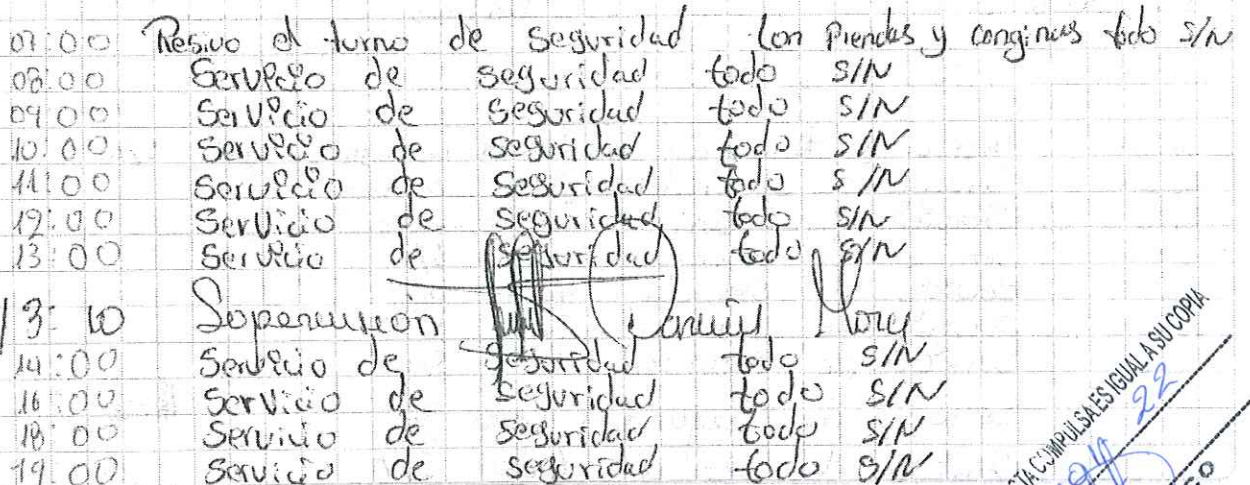 07:00 Resivo el turno de seguridad con Prendas y conginas todo S/N
08:00 Servicio de seguridad todo S/N
09:00 Servicio de seguridad todo S/N
10:00 Servicio de seguridad todo S/N
11:00 Servicio de seguridad todo S/N
12:00 Servicio de seguridad todo S/N
13:00 Servicio de seguridad todo S/N
13:10 Supervisión
14:00 Servicio de seguridad todo S/N
16:00 Servicio de seguridad todo S/N
18:00 Servicio de seguridad todo S/N
19:00 Servicio de seguridad todo S/N
COMPULSA ES IGUAL A SU COPIA
22